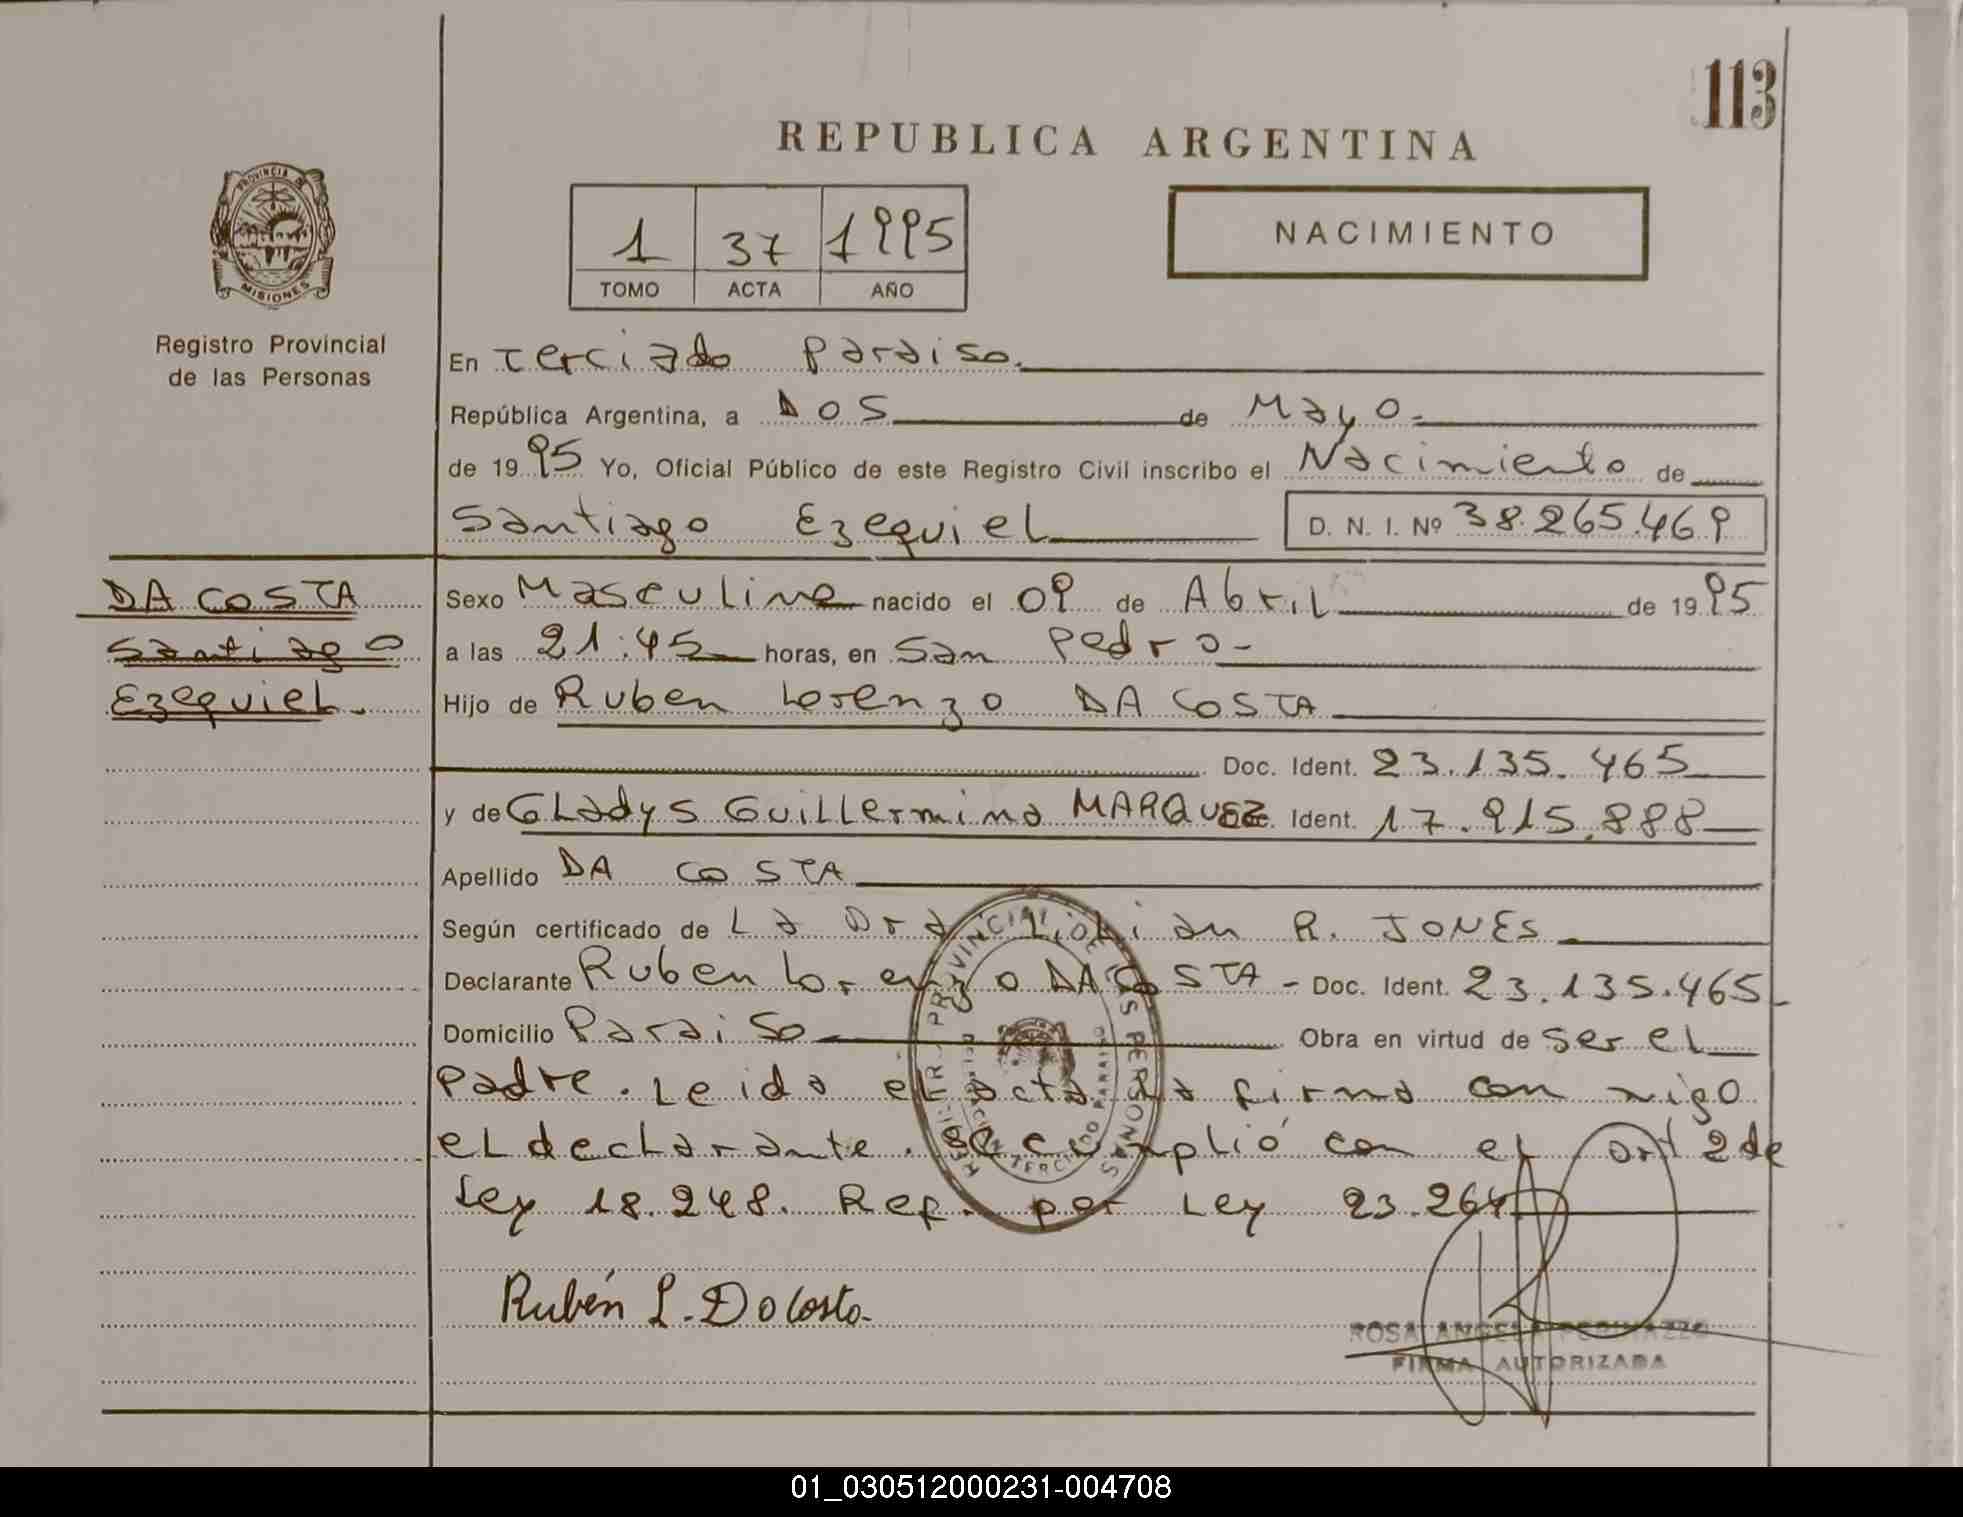 113
REPUBLICA ARGENTINA
PROVINCIA DE
MISIONES
1 37 1995
TOMO ACTA AÑO
NACIMIENTO
Registro Provincial
de las Personas
En Terciado Paraiso.
República Argentina, a DOS de Mayo.
de 1995 Yo, Oficial Público de este Registro Civil inscribo el Nacimiento de
Santiago Ezequiel D. N. I. Nº 38.265.469
DA COSTA
Santiago
Ezequiel.
Sexo Masculino nacido el 09 de Abril de 1995
a las 21:45 horas, en San Pedro-
Hijo de Ruben Lorenzo DA COSTA
Doc. Ident. 23.135.465
y de Gladys Guillermina MARQUEZ Ident. 17.915.888
Apellido DA COSTA
Según certificado de La Dra Lilian R. JONES
Declarante Ruben Lorenzo DA COSTA - Doc. Ident. 23.135.465
Domicilio Paraiso Obra en virtud de ser el
Padre. Leida el acta la firma con migo
el declarante. Se cumplió con el art 2 de
Ley 18.248. Ref. por Ley 23.264
REGISTRO PROVINCIAL DE LAS PERSONAS
TERCIADO PARAISO
Rubén L. Da Costa.
ROSA ANGELA
FIRMA AUTORIZADA
01_030512000231-004708